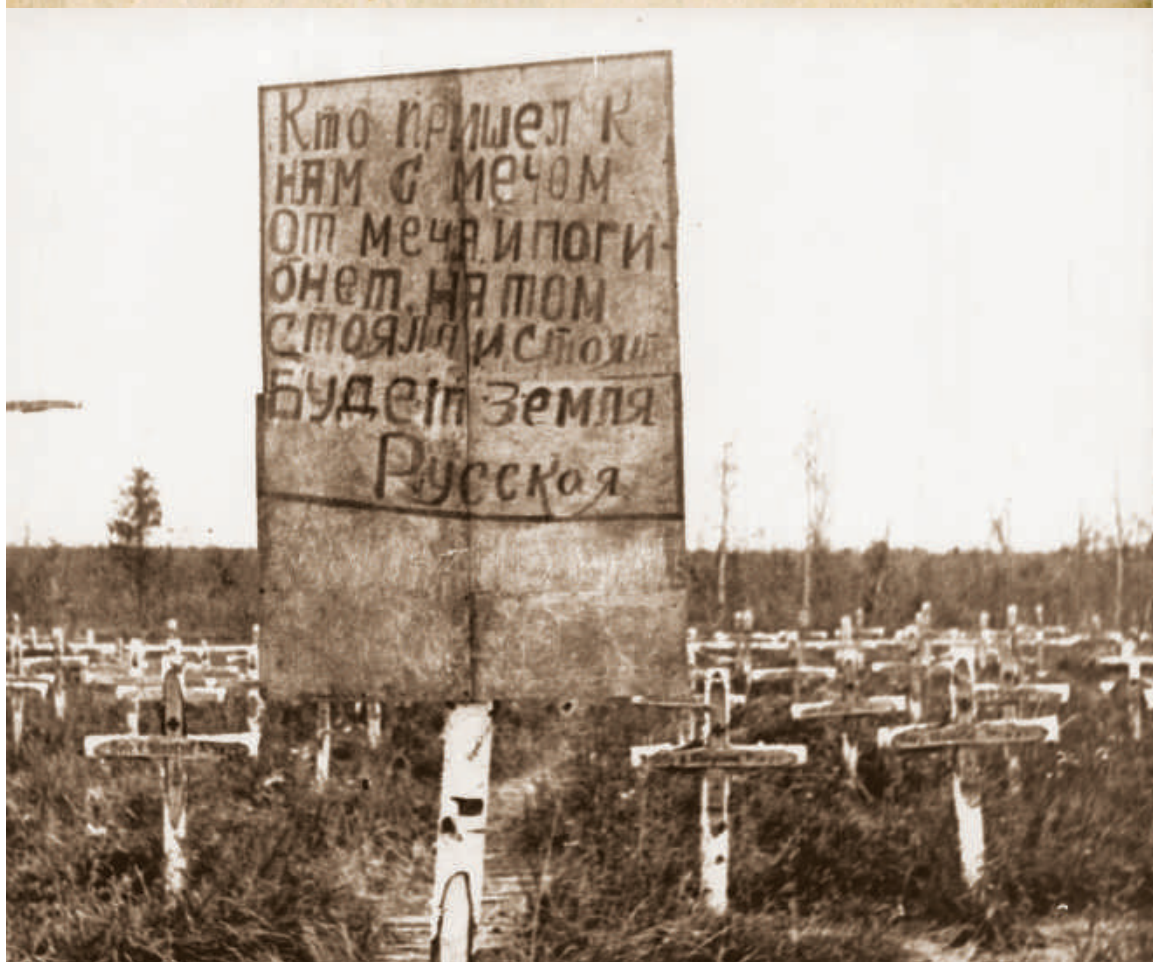 Кто пришел к
нам с мечом
от меча и поги-
бнет. на том
стояла и стоят
Будет земля
Русская